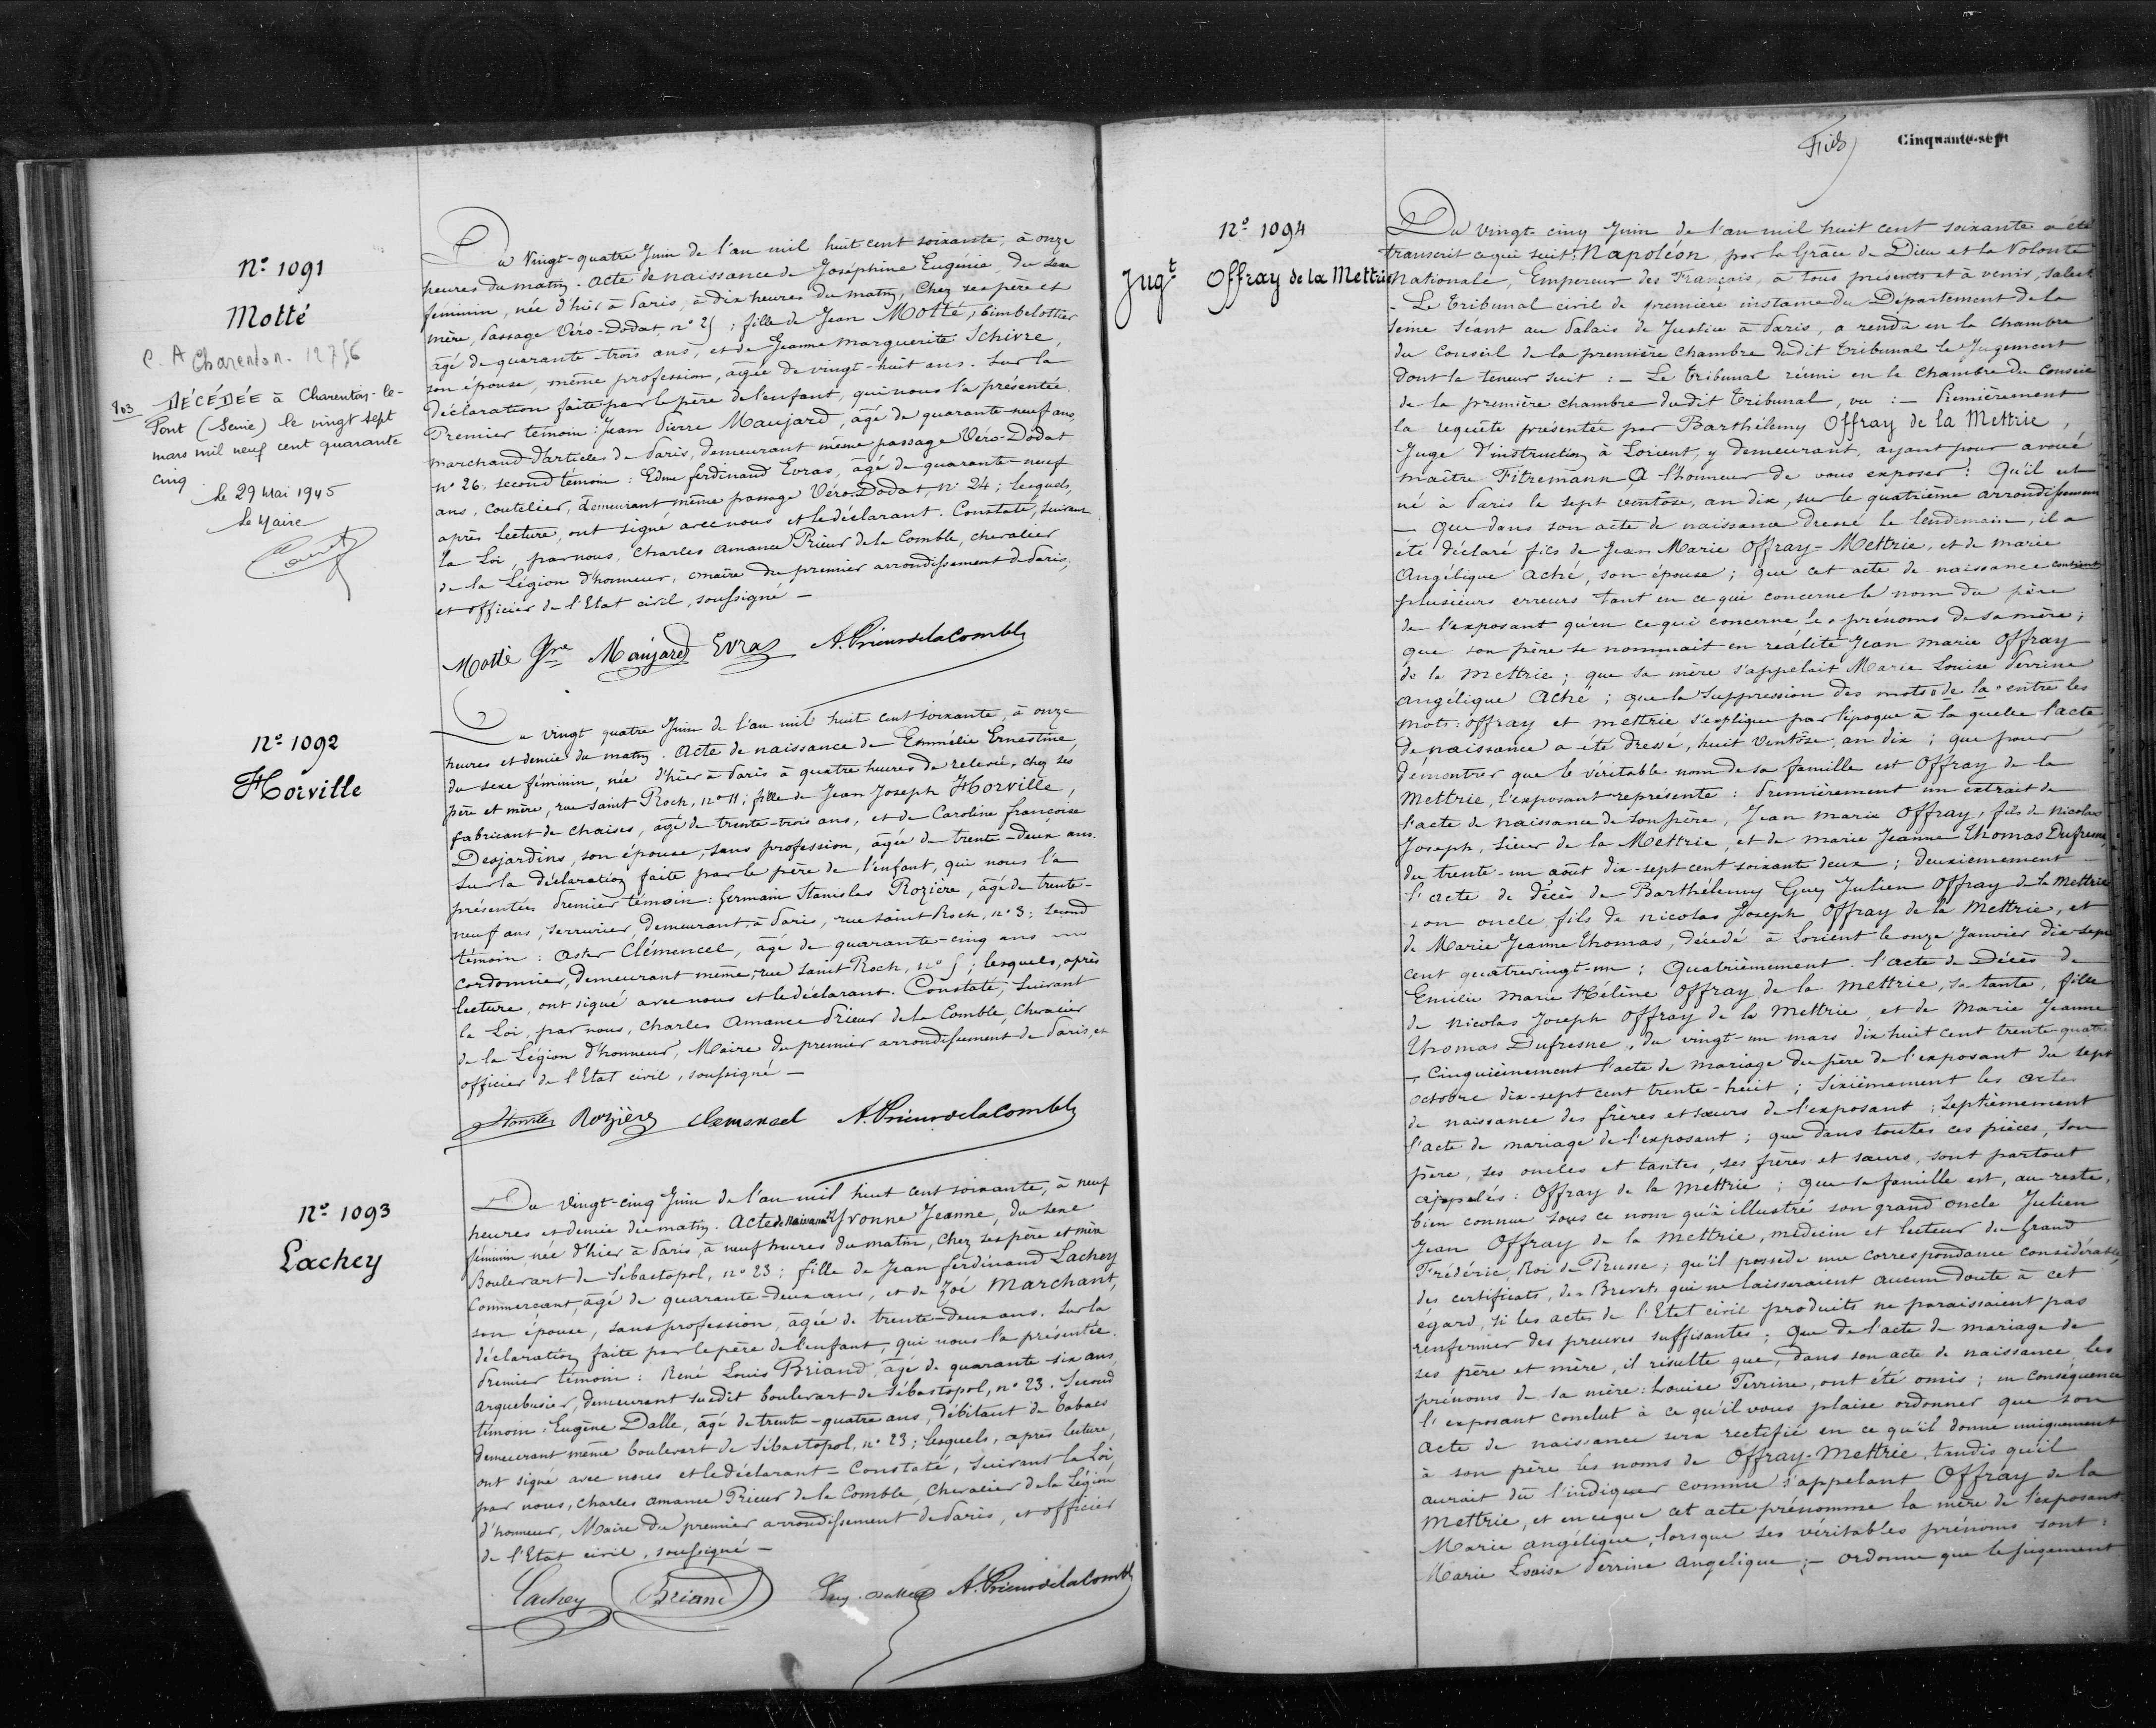 N° 1091
Motté
C. A Charenton. 12756
803
DÉCÉDÉE à Charenton-le-
Pont (Seine) le vingt sept
mars mil neuf cent quarante
cinq.
le 29 Mai 1945
Le Maire
Du Vingt-quatre Juin de l'an mil huit cent soixante, à onze
heures du matin. Acte de naissance de Joséphine Eugénie, du sexe
féminin, née d'hier à Paris, à dix heures du matin, chez ses père et
mère, Passage Véro-Dodat, n° 25; fille de Jean Motté, bimbelottier
âgé de quarante-trois ans, et de Jeanne Marguerite Schivre,
son épouse, même profession, agée de vingt-huit ans. Sur la
déclaration faite par le père de l'enfant, qui nous l'a présentée.
Premier témoin: Jean Pierre Maujard, âgé de quarante-neuf ans,
marchand d'articles de Paris, demeurant même passage Véro-Dodat
n° 26. second témoin: Edme ferdinand Evras, âgé de quarante-neuf
ans, coutelier, demeurant même passage Véro-Dodat, n° 24; lesquels,
après lecture, ont signé avec nous et le déclarant. Constaté, suivant
la Loi, par nous, Charles Amance Prieur de la Comble, chevalier
de la Légion d'honneur, maire du premier arrondissement de Paris,
et officier de l'Etat civil, soussigné —
Motté Maujard Evras A. Prieur de la Comble
N° 1092
Horville
Du vingt quatre Juin de l'an mil huit cent soixante, à onze
heures et demie du matin. Acte de naissance de Emmélie Ernestine
du sexe féminin, née d'hier à Paris à quatre heures de relevée, chez ses
père et mère, rue Saint-Roch, n° 11; fille de Jean Joseph Horville,
fabricant de chaises, âgé de trente-trois ans, et de Caroline françoise
Desjardins, son épouse, sans profession, agée de trente-deux ans.
Sur la déclaration faite par le père de l'enfant, qui nous l'a
présentée. Premier témoin: Germain Stanislas Rozière, âgé de trente-
neuf ans, serrurier, demeurant à Paris, rue Saint Roch, n° 3; second
témoin: Clémencel, âgé de quarante-cinq ans
cordonnier, demeurant même rue Saint Roch, n° 5; lesquels, après
lecture, ont signé avec nous et le déclarant. Constaté, suivant
la Loi, par nous, Charles Amance Prieur de la Comble, Chevalier
de la Légion d'honneur, Maire du premier arrondissement de Paris, et
officier de l'Etat civil, soussigné —
Rozière Clemencel A. Prieur de la Comble
N° 1093
Lachey
Du Vingt-cinq Juin de l'an mil huit cent soixante, à neuf
heures et demie du matin. Acte de Naissance Yvonne Jeanne, du sexe
féminin née d'hier à Paris, à neuf heures du matin, chez ses père et mère
Boulevart de Sébastopol, n° 23; fille de Jean ferdinand Lachey
Commerçant, âgé de quarante-deux ans, et de Zoé Marchant,
son épouse, sans profession, agée de trente-deux ans. Sur la
déclaration faite par le père de l'enfant, qui nous l'a présentée.
Premier témoin: René Louis Briand, âgé de quarante-six ans
arquebusier, demeurant susdit boulevart de Sébastopol, n° 23. Second
témoin: Eugène Dalle, âgé de trente-quatre ans, débitant de tabacs
demeurant même boulevart de Sébastopol, n° 23; lesquels, après lecture,
ont signé avec nous et le déclarant — Constaté, suivant la Loi
par nous, Charles Amance Prieur de la Comble, Chevalier de la Légion
d'honneur, Maire du premier arrondissement de Paris, et officier
de l'Etat civil, soussigné —
Lachey Briand Eug. Dalle A. Prieur de la Comble
Cinquante-sept
N° 1094
Jugt Offray de la Mettrie
Du vingt cinq Juin de l'an mil huit cent soixante a été
transcrit ce qui suit: Napoléon, par la Grâce de Dieu et la Volonté
Nationale, Empereur des Français, à tous présents et à venir, salut
- Le Tribunal civil de première instance du Département de la
Seine séant au Palais de Justice à Paris, a rendu en la Chambre
du Conseil de la première chambre dudit Tribunal le Jugement
dont la teneur suit : — Le Tribunal réuni en la Chambre du Conseil
de la première chambre dudit Tribunal, vu : — Premièrement
la requête présentée par Barthélemy Offray de la Mettrie,
Juge d'instruction à Lorient, y demeurant, ayant pour avoué
maître Fitremann A l'honneur de vous exposer: Qu'il est
né à Paris le sept ventôse, an dix, sur le quatrième arrondissement
— Que dans son acte de naissance dressé le lendemain, il a
été déclaré fils de Jean Marie Offray-Mettrie, et de Marie
Angélique Aché, son épouse; que cet acte de naissance contient
plusieurs erreurs tant en ce qui concerne le nom du père
de l'exposant qu'en ce qui concerne les prénoms de sa mère;
que son père se nommait en réalité Jean Marie Offray
de la Mettrie; que sa mère s'appelait Marie Louise Perrine
Angélique Aché; que la suppression des mots "de la" entre les
mots: offray et mettrie s'explique par l'époque à la quelle l'acte
de naissance a été dressé, huit Ventôse, an dix; que pour
démontrer que le véritable nom de sa famille est Offray de la
Mettrie, l'exposant représente: Premièrement un extrait de
l'acte de naissance de son père, Jean Marie Offray, fils de Nicolas
Joseph, Sieur de la Mettrie, et de Marie Jeanne Thomas Dufresne,
du trente-un août dix-sept cent soixante deux; deuxièmement
l'acte de décès de Barthélemy Guy Julien Offray de la Mettrie
son oncle fils de Nicolas Joseph Offray de la Mettrie, et
de Marie Jeanne Thomas, décédé à Lorient le onze Janvier dix-sept
cent quatrevingt-un; Quatrièmement l'acte de Décès de
Emilie Marie Hélène Offray de la Mettrie, sa tante, fille
de Nicolas Joseph Offray de la Mettrie, et de Marie Jeanne
Thomas Dufresne, du vingt-un mars dix huit cent trente-quatre
— Cinquièmement l'acte de mariage du père de l'exposant du sept
octobre dix-sept cent trente-huit; Sixièmement les actes
de naissance des frères et sœurs de l'exposant; Septièmement
l'acte de mariage de l'exposant; que dans toutes ces pièces, son
père, ses oncles et tantes, ses frères et sœurs, sont partout
appelés: Offray de la Mettrie; que sa famille est, au reste,
bien connue sous ce nom qu'a illustré son grand oncle Julien
Jean Offray de la Mettrie, médecin et lecteur du Grand
Frédéric, Roi de Prusse; qu'il possède une correspondance considérable,
des certificats, des Brevets qui ne laisseraient aucun doute à cet
égard, si les actes de l'Etat civil produits ne paraissaient pas
renfermer des preuves suffisantes; Que de l'acte de mariage de
ses père et mère, il résulte que, dans son acte de naissance, les
prénoms de sa mère: Louise Perrine, ont été omis; en conséquence
l'exposant conclut à ce qu'il vous plaise ordonner que son
acte de naissance sera rectifié en ce qu'il donne uniquement
à son père les noms de Offray-Mettrie, tandis qu'il
aurait dû l'indiquer comme s'appelant Offray de la
Mettrie, et en ce que cet acte prénomme la mère de l'exposant
Marie Angélique, lorsque ses véritables prénoms sont:
Marie Louise Perrine Angélique; — ordonne que le jugement